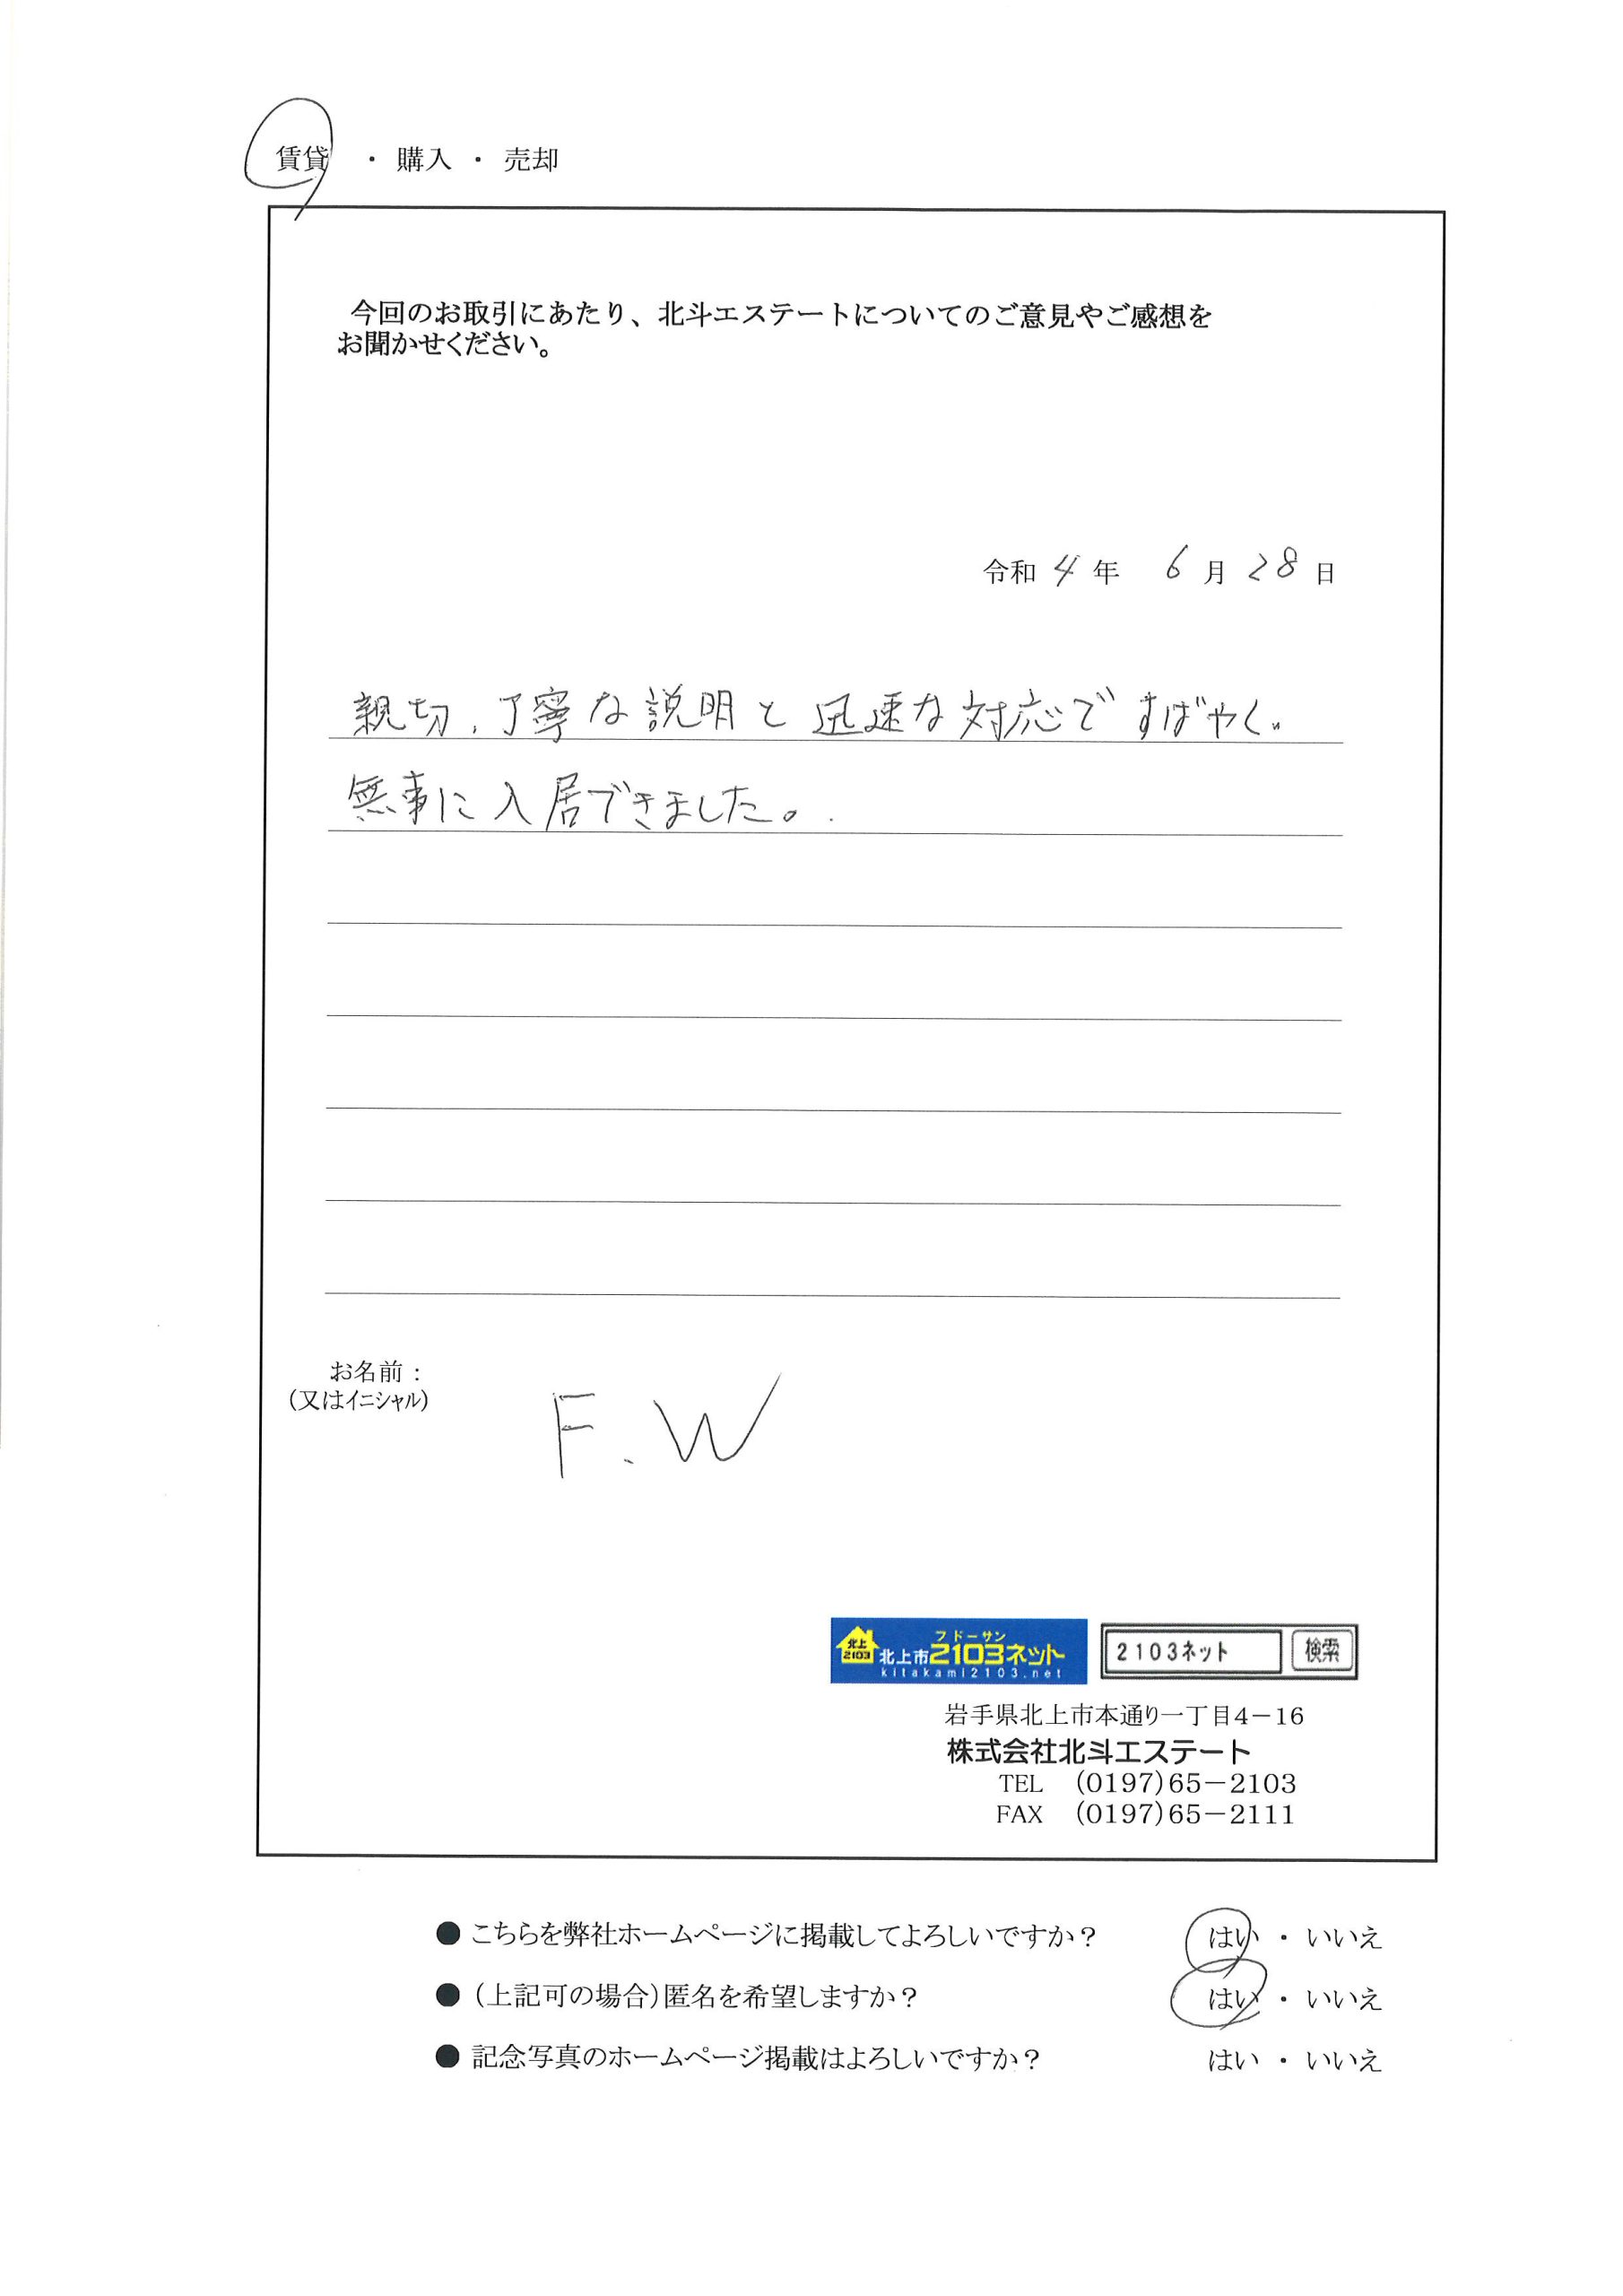 賃貸 ・ 購入 ・ 売却
今回のお取引にあたり、北斗エステートについてのご意見やご感想を
お聞かせください。
令和 4 年 6 月 28 日
親切、丁寧な説明と迅速な対応ですばやく、
無事に入居できました。
お名前：
(又はイニシャル)
F.W
北上
2103
フドーサン
北上市2103ネット
kitakami2103.net
2103ネット 検索
岩手県北上市本通り一丁目4－16
株式会社北斗エステート
TEL (0197)65－2103
FAX (0197)65－2111
● こちらを弊社ホームページに掲載してよろしいですか？ はい ・ いいえ
● (上記可の場合)匿名を希望しますか？ はい ・ いいえ
● 記念写真のホームページ掲載はよろしいですか？ はい ・ いいえ